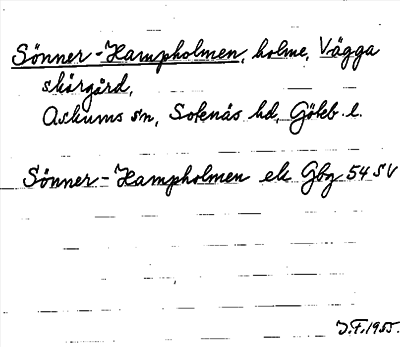 Sönner-Hampholmen, holme, Vägga
skärgård,
Askums sn, Sotenäs hd, Göteb. l.
Sönner-Hampholmen ek Gbg 54 SV
J.F. 1955.